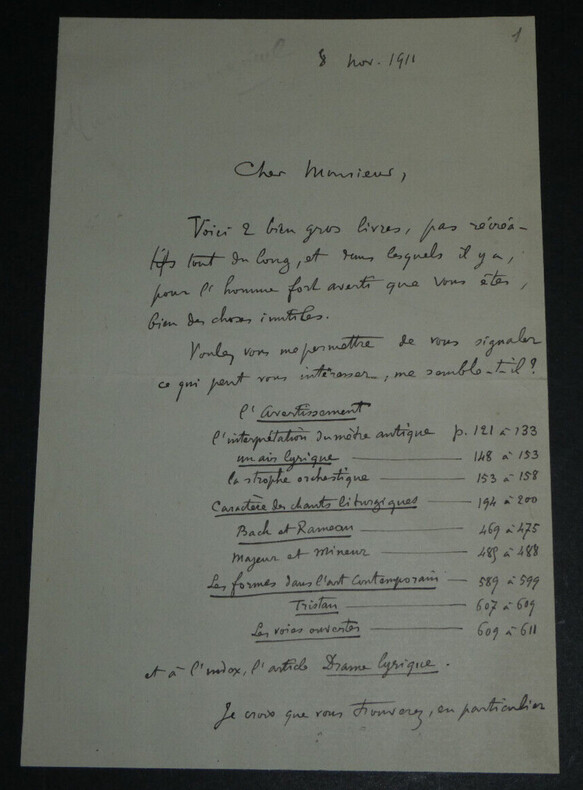 1
8 nov. 1911
Cher Monsieur,
Voici 2 bien gros livres, pas récréa-
tifs tout du long, et dans lesquels il y a,
pour l'homme fort averti que vous êtes,
bien des choses inutiles.
Voulez vous me permettre de vous signaler
ce qui peut vous intéresser, me semble-t-il ?
l'Avertissement
l'interprétation du mètre antique p. 121 à 133
un air lyrique — 148 à 153
la strophe orchestique — 153 à 158
Caractère des chants liturgiques — 194 à 200
Bach et Rameau — 469 à 475
Majeur et Mineur — 485 à 488
Les formes dans l'art contemporain — 589 à 599
Tristan — 607 à 609
Les voies ouvertes — 609 à 611
et à l'index, l'article Drame lyrique.
Je crois que vous trouverez, en particulier